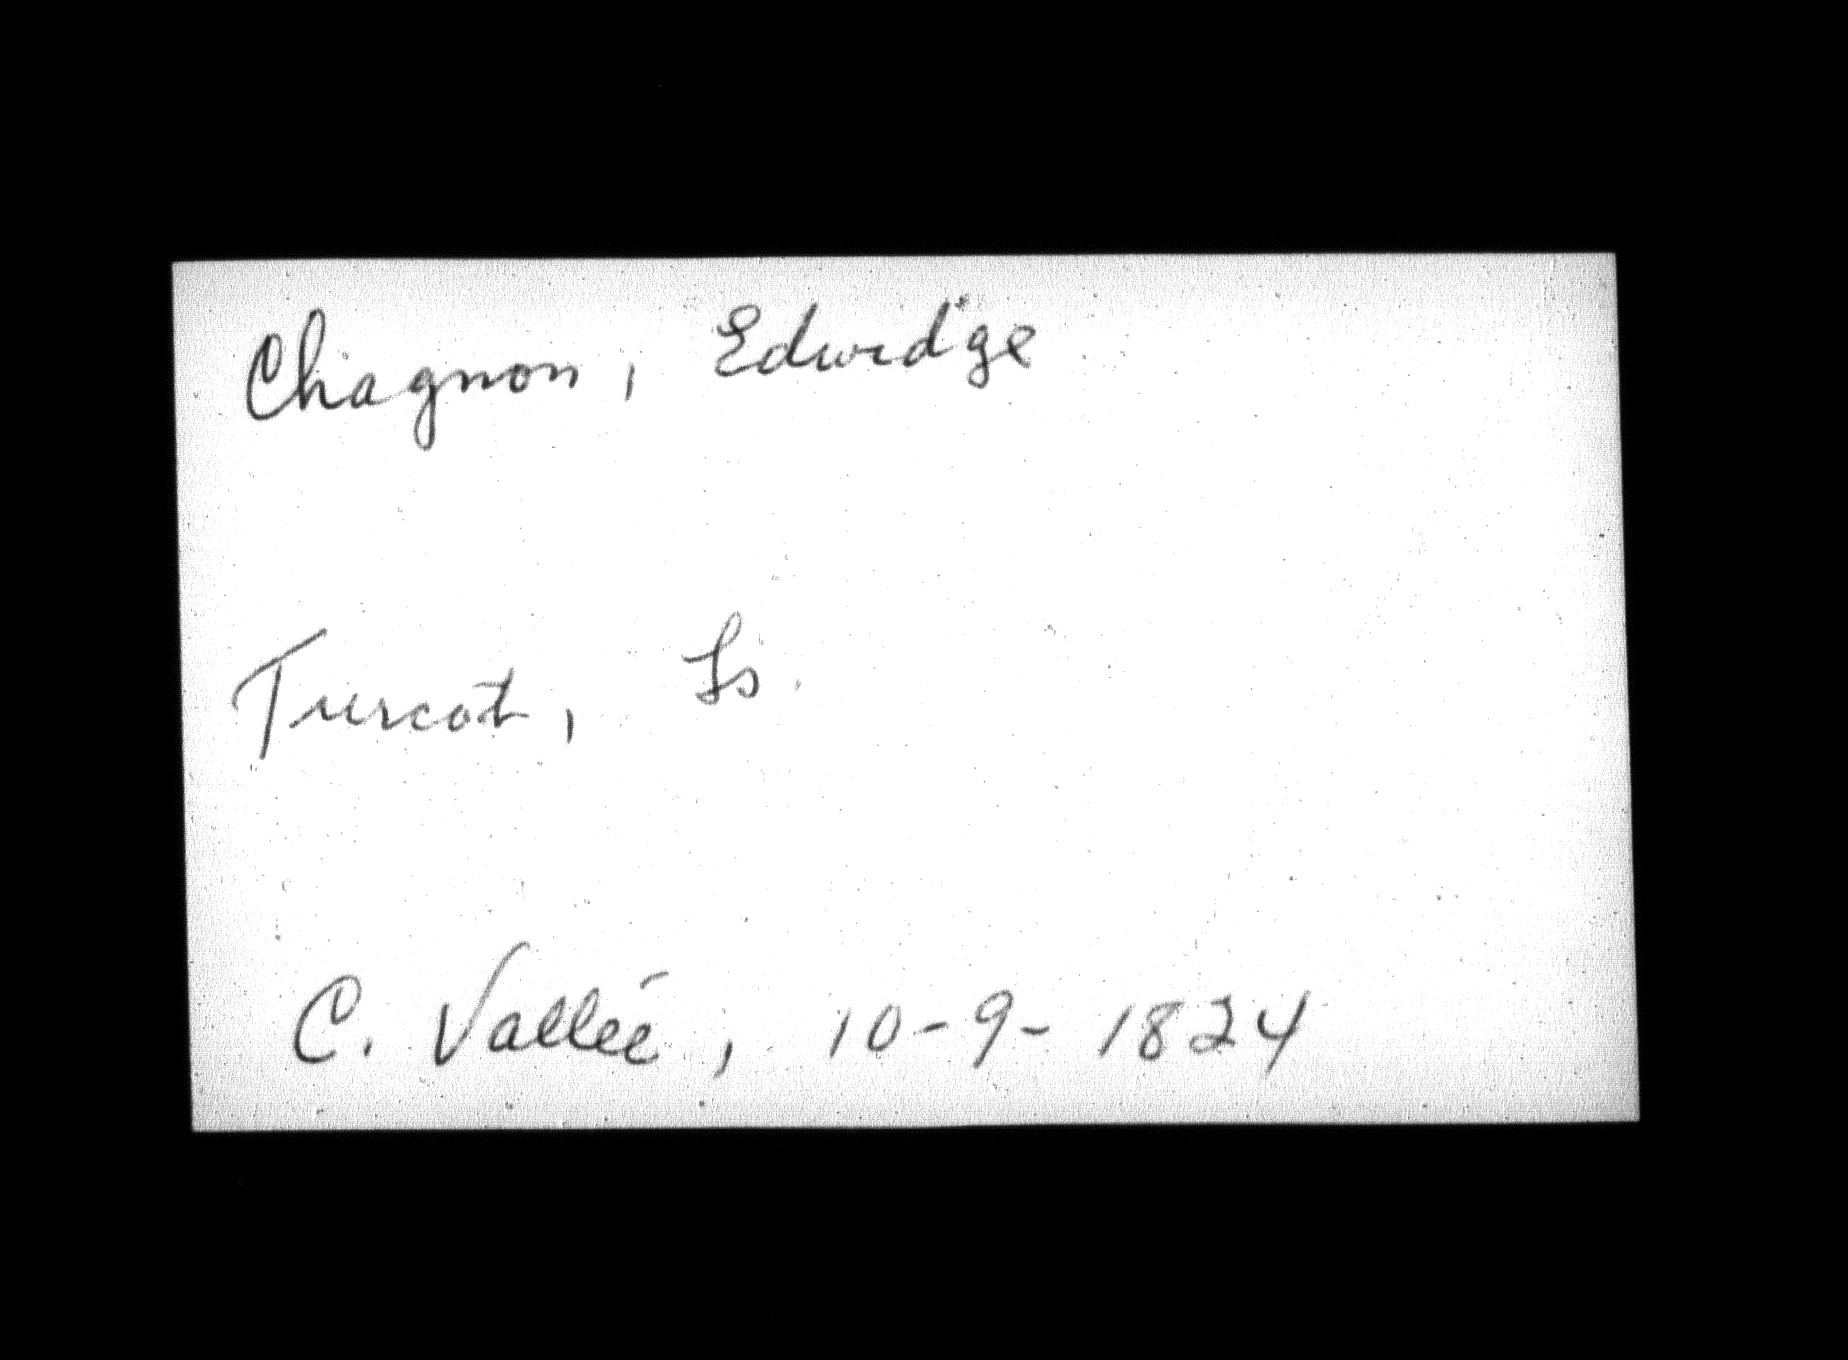 Chagnon, Edwidge
Turcot, Ls.
C. Vallée, 10-9-1824